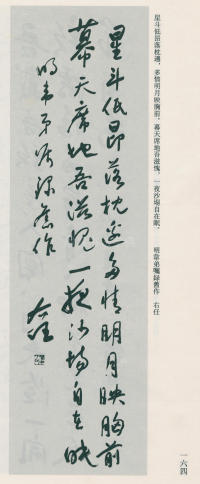 星斗低昂落枕邊,多情明月映胸前,幕天席地吾滋愧,一夜沙塲自在眠. 明韋弟囑録舊作 右任
星斗低昂落枕邊多情明月映胸前
幕天席地吾滋愧一夜沙場自在眠
明韋弟囑録舊作
右任
一六四